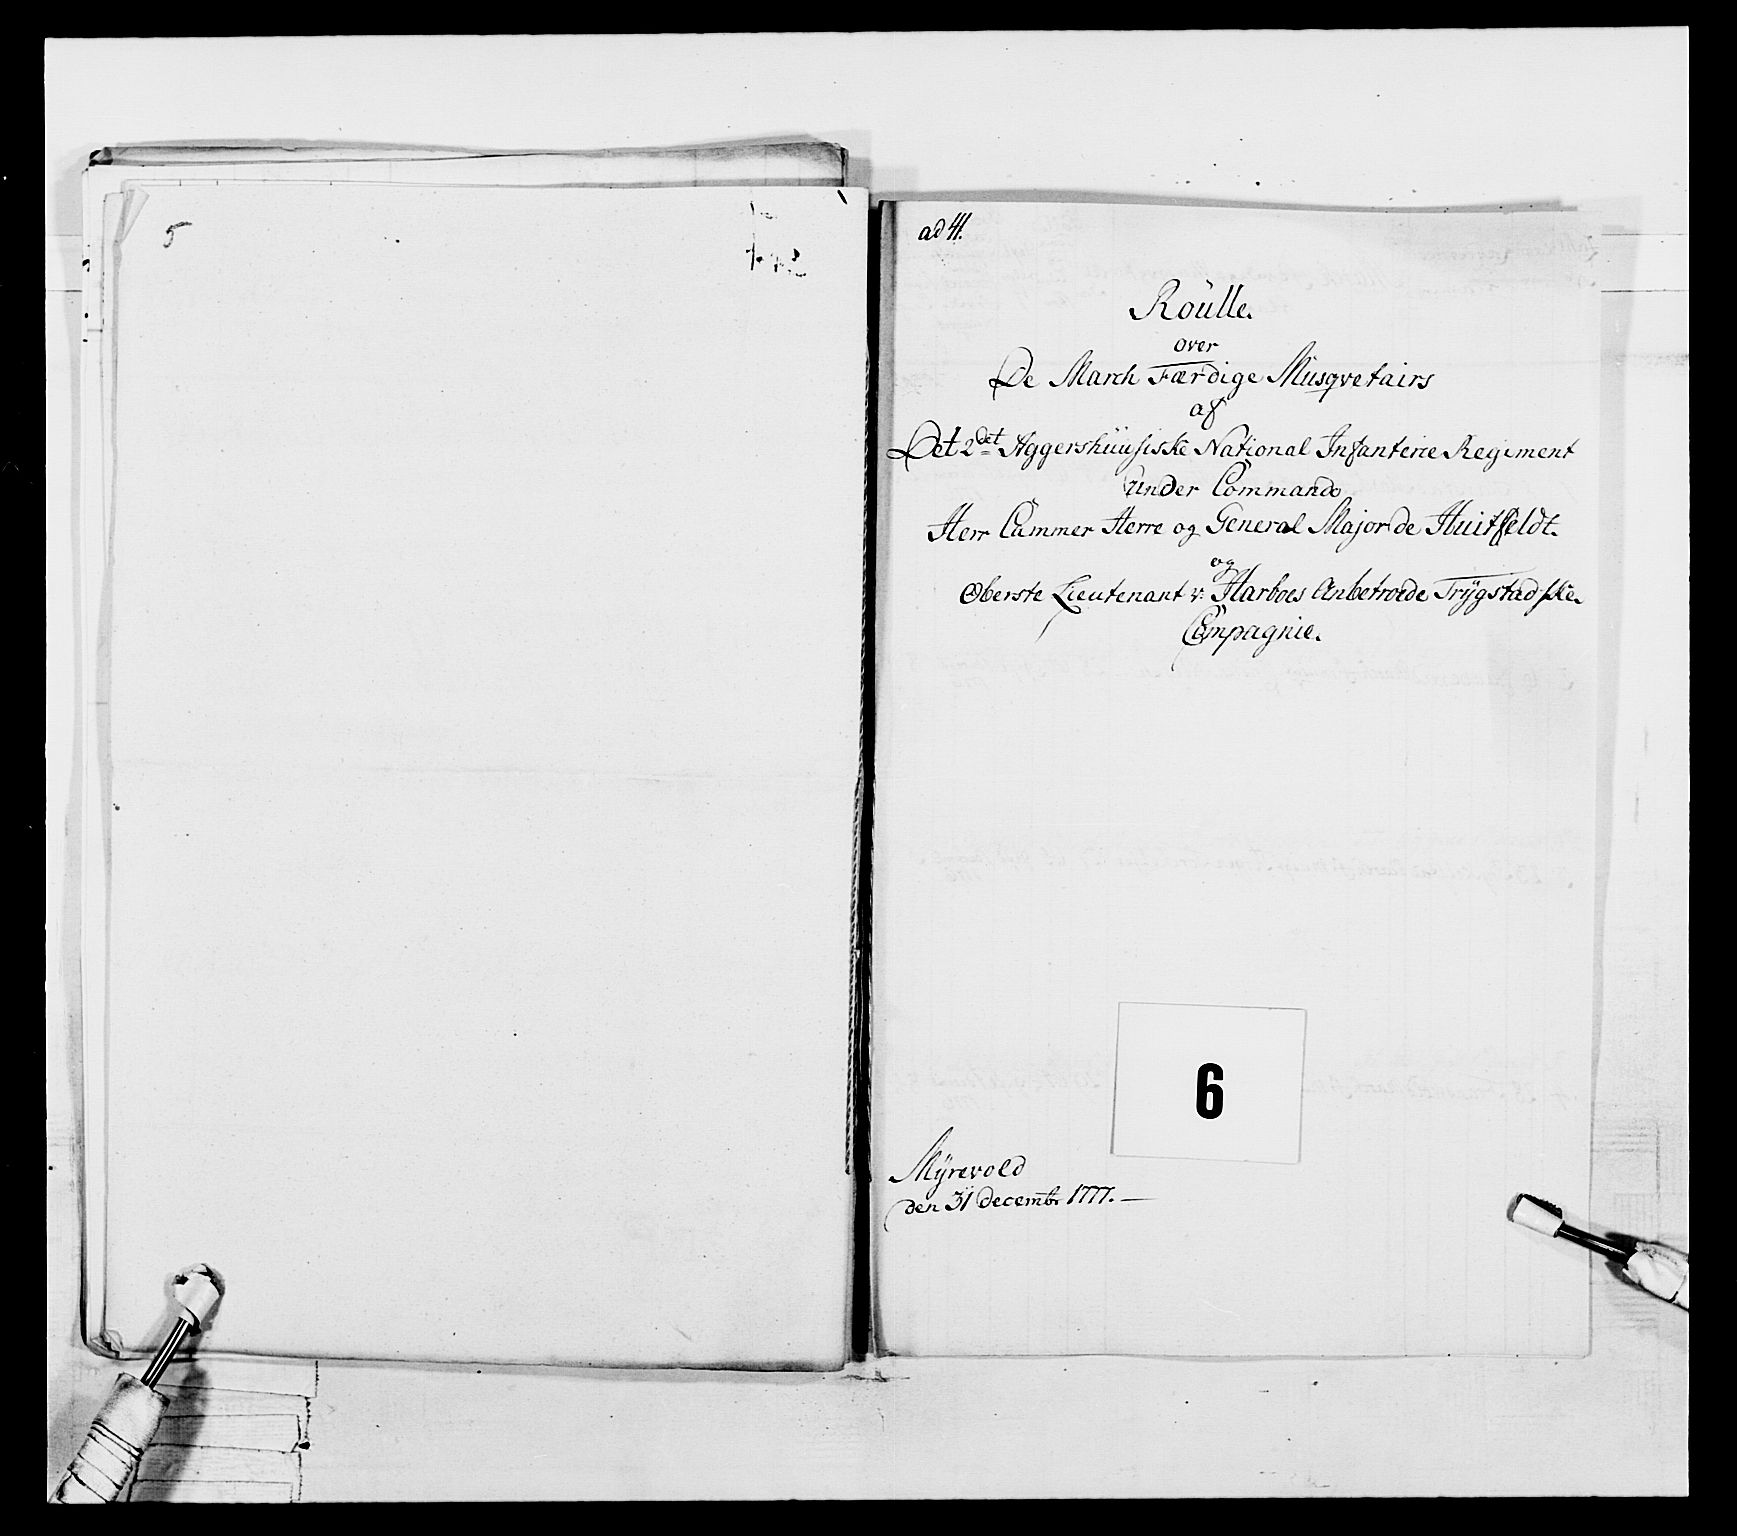 5
ad 41.
Roülle.
over
De March Færdige Müsqvetairs
af
Det 2det Aggershüüsiske National Infanterie Regiment
under Commando
Herr Cammer Herre og General Major de Huitfeldt.
og
Oberste Lieutenant v: Harboes Anbetroede Trÿgstadske
Compagnie.
6
Mÿrevold
den 31 decembr 1777. —